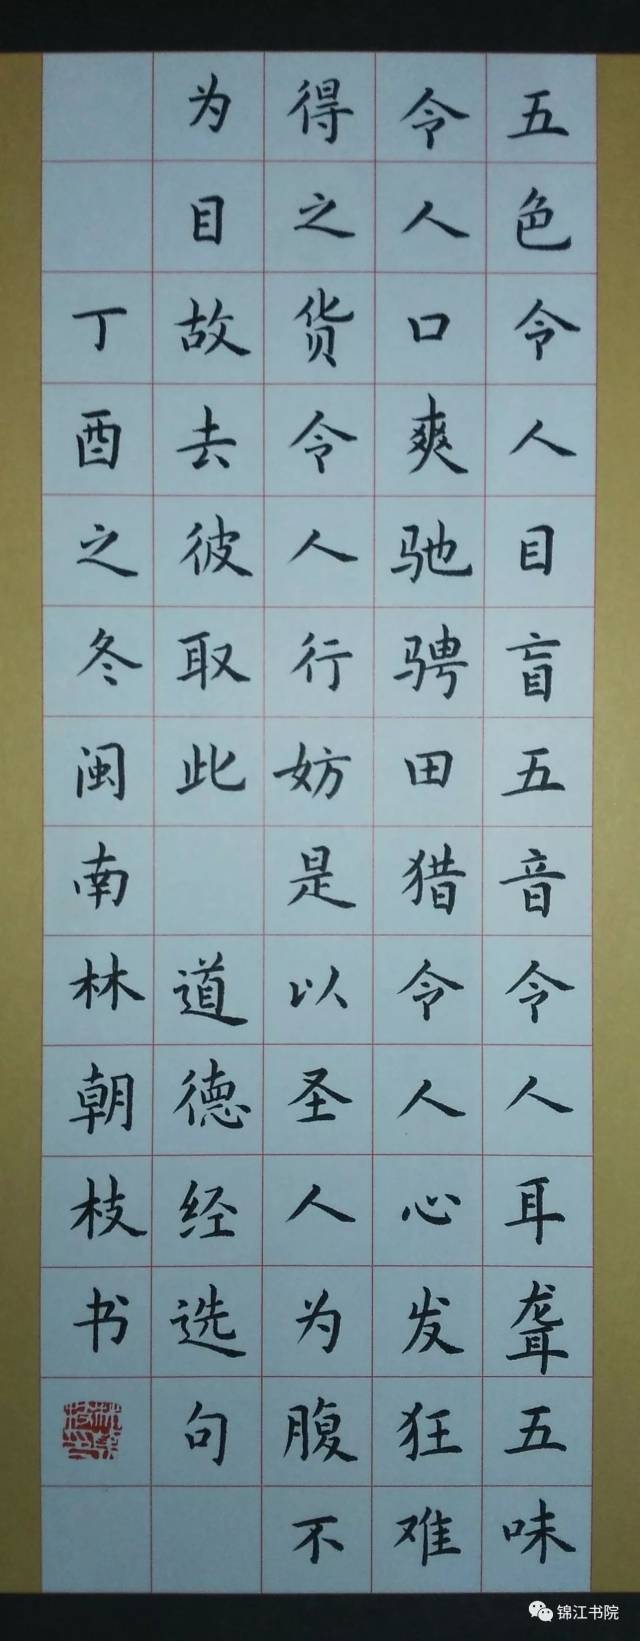 五色令人目盲五音令人耳聋五味
令人口爽驰骋田猎令人心发狂难
得之货令人行妨是以圣人为腹不
为目故去彼取此 道德经选句
丁酉之冬闽南林朝枝书
锦江书院